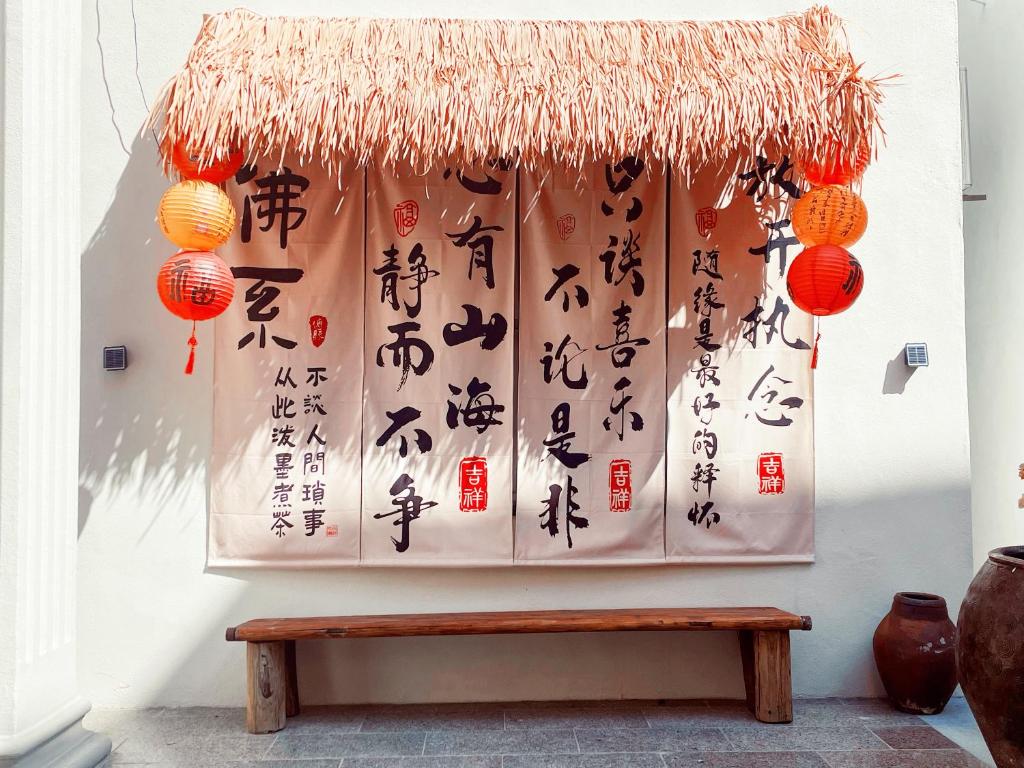 佛系
不談人間瑣事
从此泼墨煮茶
心有山海
静而不争
福
吉祥
只谈喜乐
不论是非
福
吉祥
放开执念
随缘是最好的释怀
福
吉祥
福